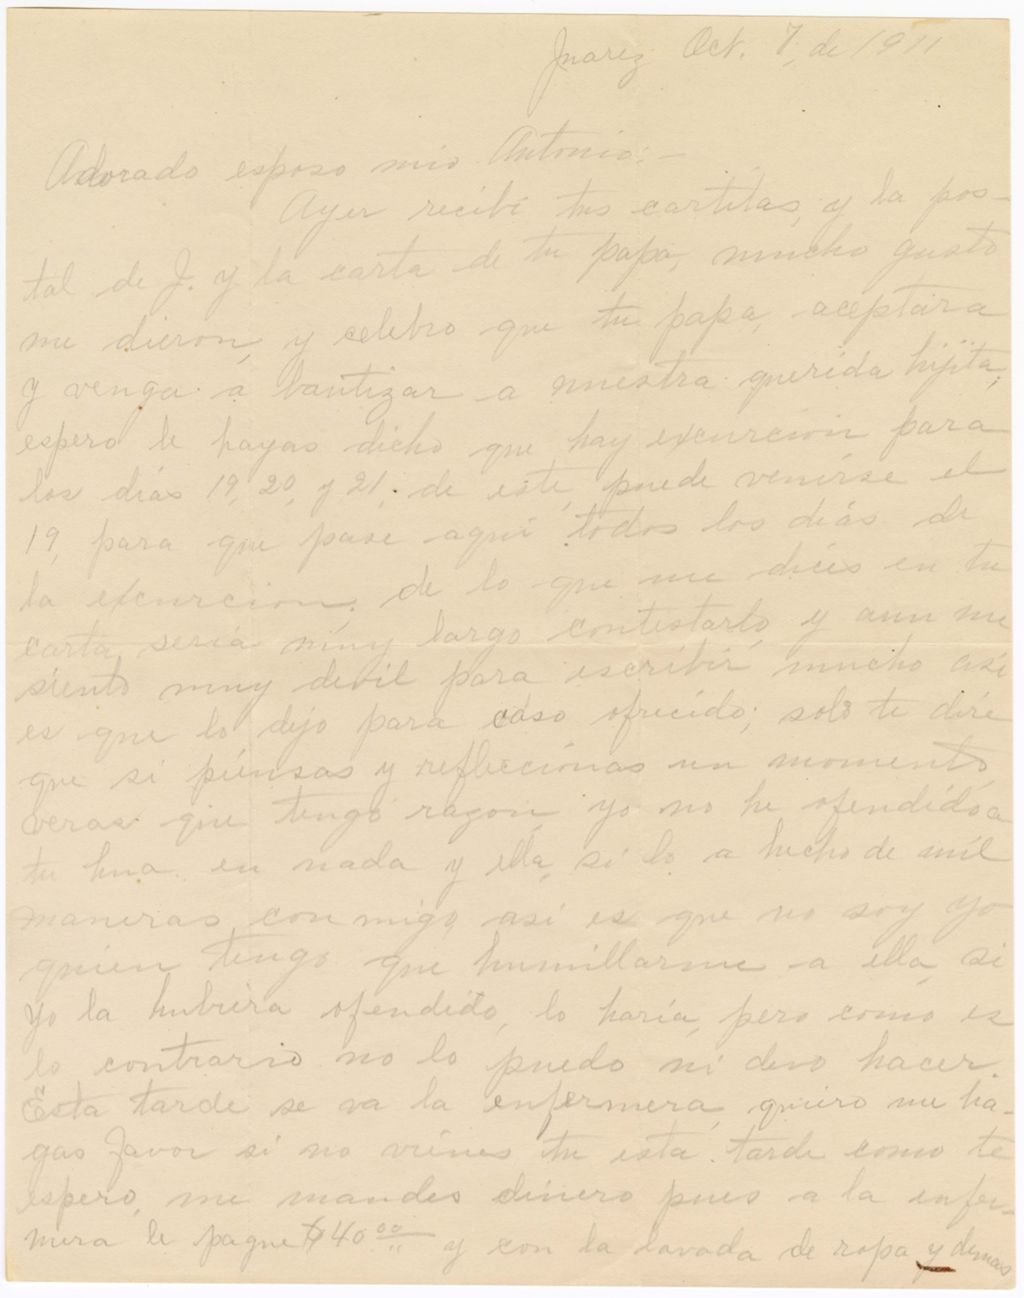 Juarez Oct. 7, de 1911
Adorado esposo mio Antonio:-
Ayer recibí tus cartitas, y la pos-
tal de J. y la carta de tu papa, mucho gusto
me dieron, y celebro que tu papa, aceptara
y venga á bautizar a nuestra querida hijita,
espero le hayas dicho que hay excurcion para
los diás 19, 20, y 21, de este, puede venirse el
19, para que pase aquí todos los diás de
la excurcion, de lo que me dices en tu
carta, seria muy largo contestarlo, y aun me
siento muy devil para escribir mucho asi
es que lo dejo para caso ofrecido; solo te dire
que si piensas y reflecciónas un momento,
veras que tengo razon, yo no he ofendido a
tu hna en nada y ella, si lo a hecho de mil
maneras, con migo, asi es que no soy yo
quien tengo que humillarme a ella, si
yo la hubiera ofendido, lo haria, pero como es
lo contrario no lo puedo ni devo hacer.
Esta tarde se va la enfermera, quiero me ha-
gas favor si no vienes tu esta tarde como te
espero, me mandes dinero pues a la enfer-
mera le pague $40 00 y con la lavada de ropa y demas